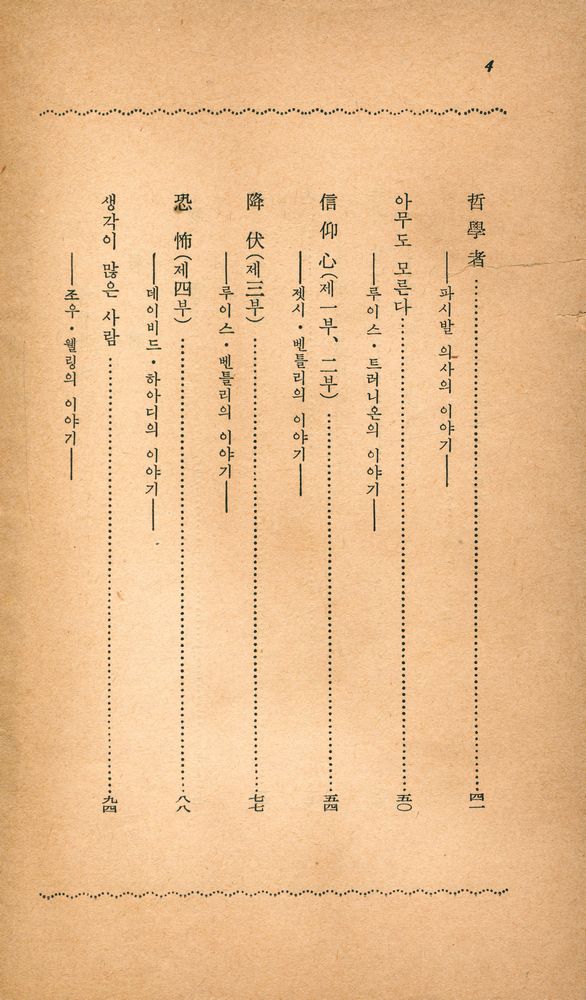 4
哲學者……四一
——파시발 의사의 이야기——
아무도 모른다……五〇
——루이스·트러니온의 이야기——
信仰心(제一부、二부)……五四
——젯시·벤틀리의 이야기——
降伏(제三부)……七七
——루이스·벤틀리의 이야기——
恐怖(제四부)……八八
——데이비드·하아디의 이야기——
생각이 많은 사람……九四
——조우·웰링의 이야기——